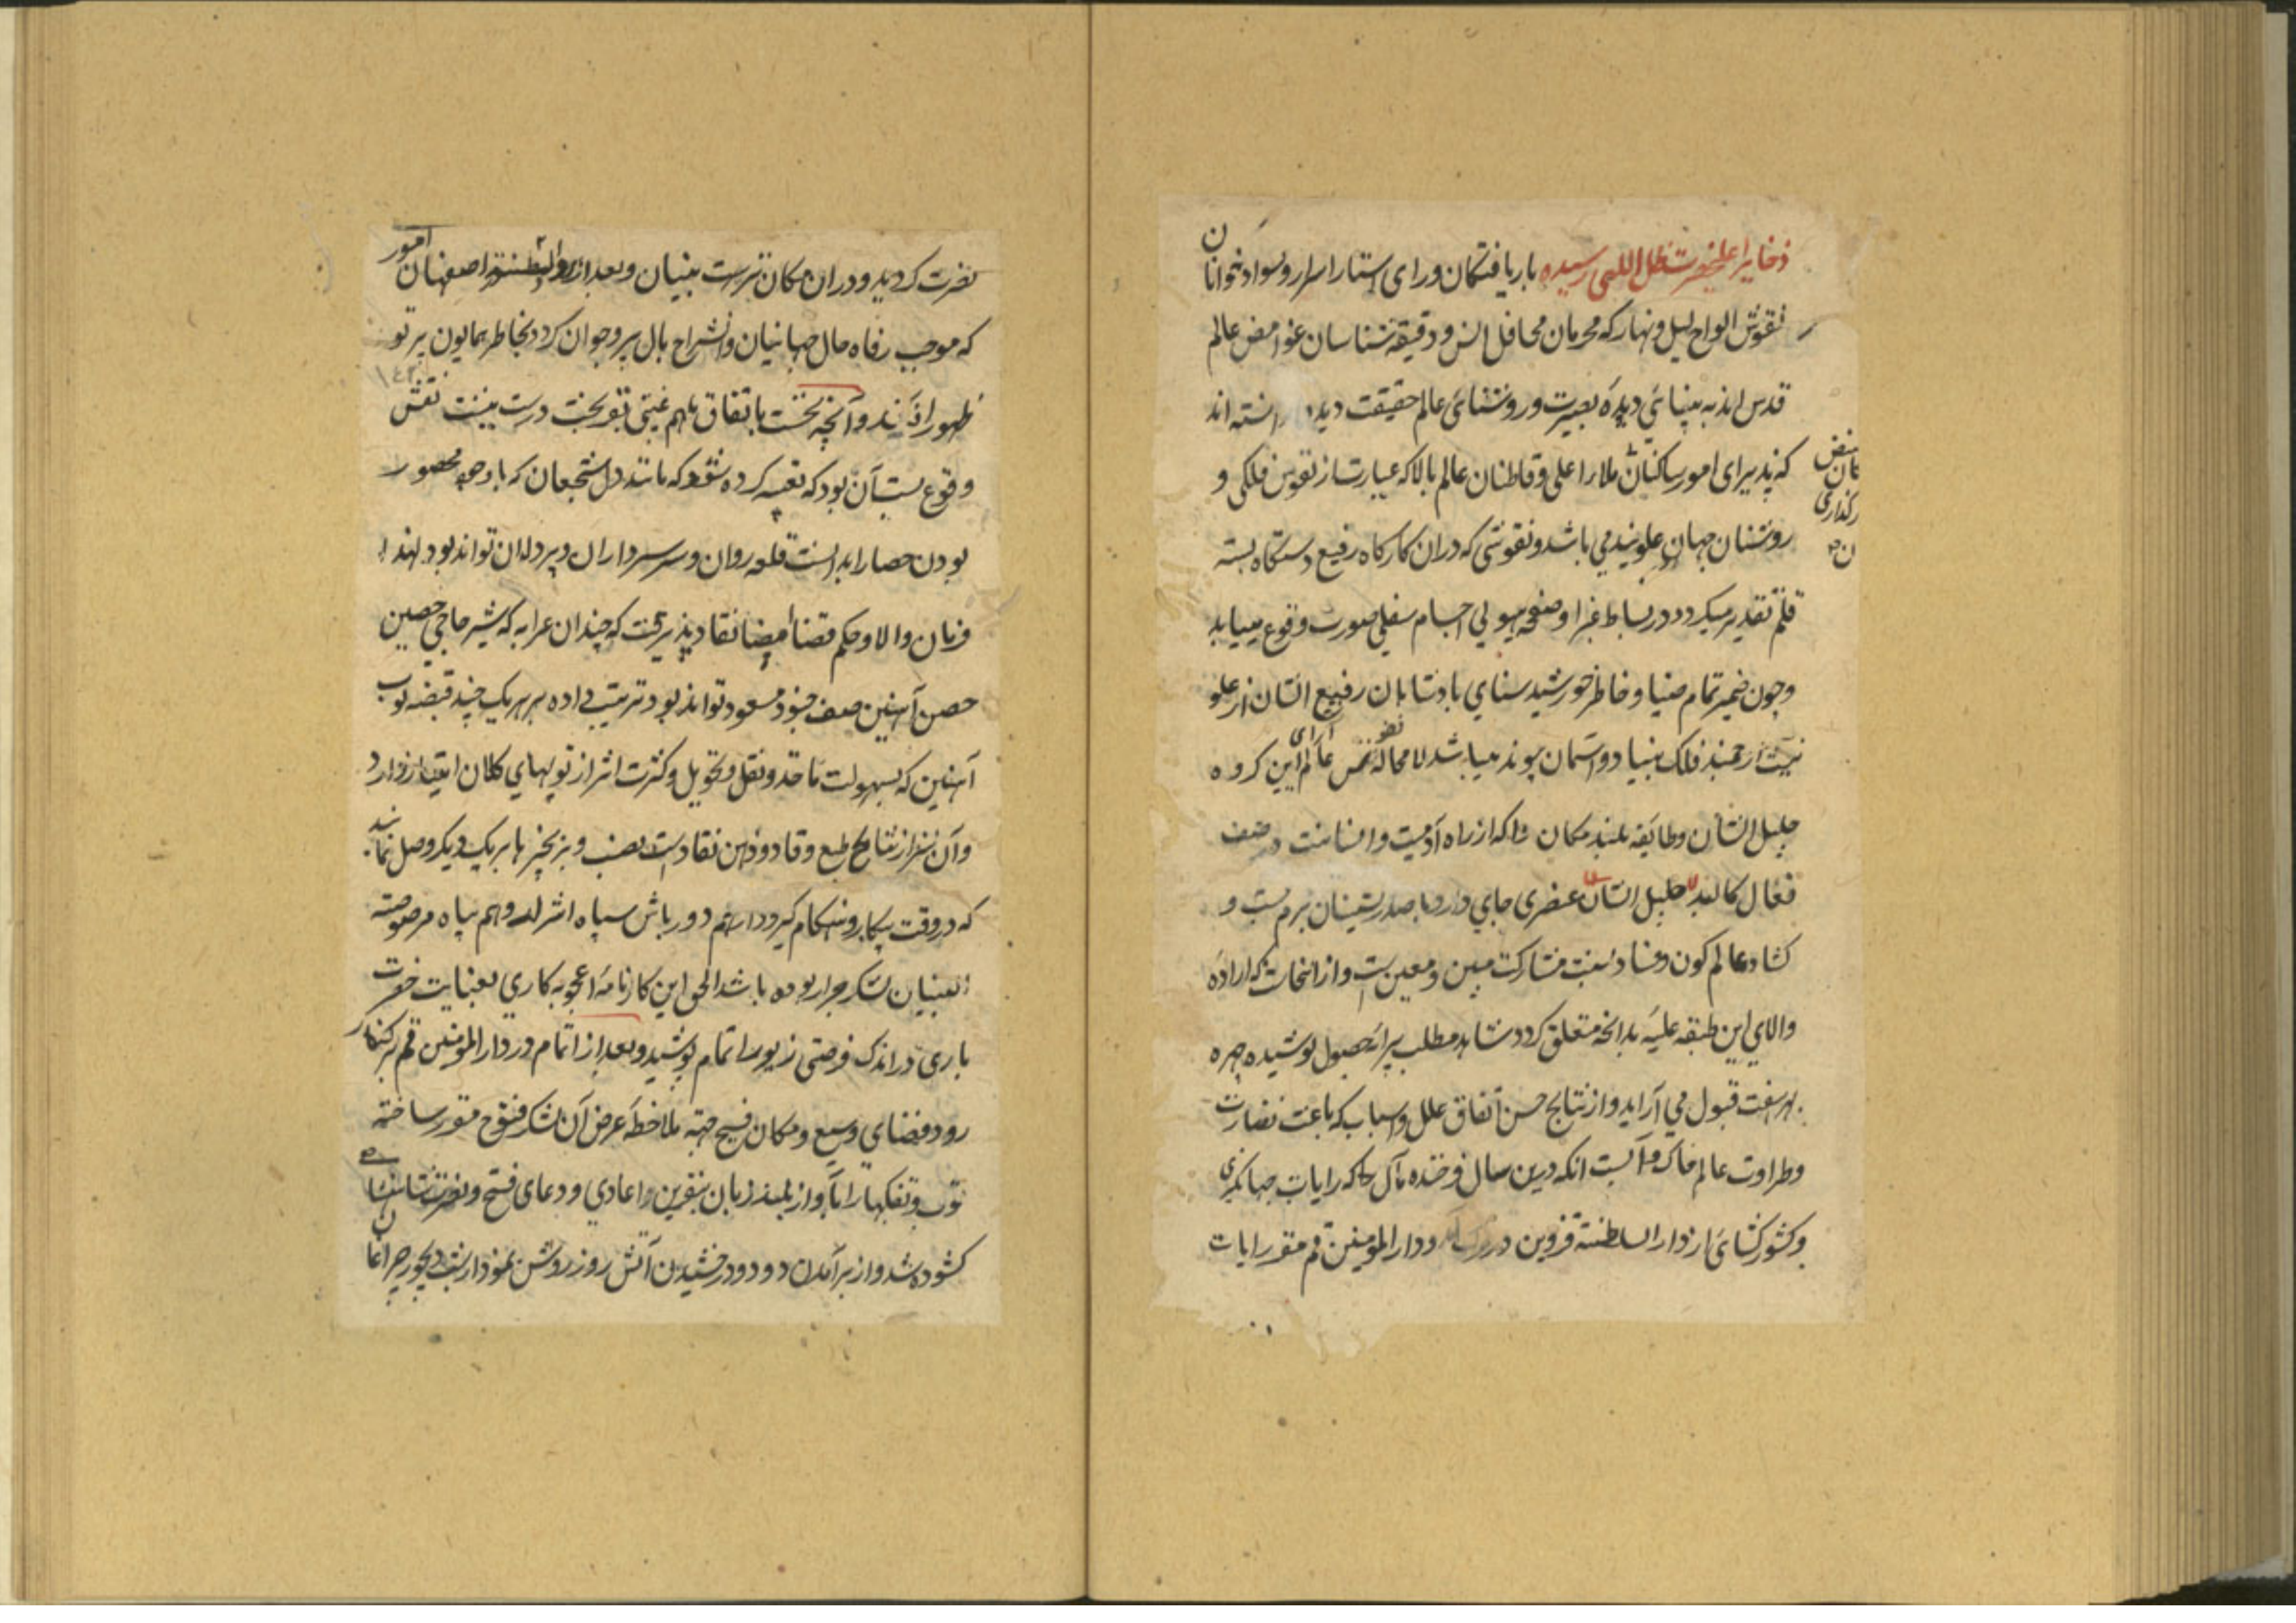 ذخایر اعلیحضرت ظل اللهی رسیده باریافتگان ورای استار اسرار و سواد خوانان
نقوش الواح لیل و نهار که محرمان محافل انس و دقیقه شناسان غوامض عالم
قدس اند به بینائی دیده بصیرت و روشنائی عالم حقیقت دیده دانسته اند
که پذیرای امور ساکنان ملاء اعلی و قاطنان عالم بالا که عبارت از نفوس فلکی و
روشنان جهان علویند می باشد و نقوشی که در ان کارکاه رفیع دستکاه بسته
قلم تقدیر میکردد در بساط غبرا و صفحه هیولی اجسام سفلی صورت وقوع مییابد
و چون ضمیر تمام ضیا و خاطر خورشید سنای پادشاهان رفیع الشان از علو
نیت ارجمند فلک بنیاد و اسمان پیوند میباشد لا محاله عالم آرای این کروه
جلیل الشان و طایفه بلند مکان را که از راه آدمیت و انسانیت در صف
فعال کالبد عنصری جای دارد با صدرنشینان بزم بست و
کشاد عالم کون و فساد نسبت مشارکت مبین و معین است و از انجاست که اراده
والای این طبقه علیه بدانچه متعلق کردد شاهد مطلب پیرایه حصول پوشیده چهره
بر سفت قبول می آراید و از نتایج حسن اتفاق علل و اسباب که باعث نضارت
و طراوت عالم خاک و آبست انکه درین سال فرخنده مآل که رایات جهانکیری
و کشورکشائی از دار السلطنة قزوین در حرکت آمده و دار المومنین قم مقر رایات
نصرت کردید و در ان مکان نزهت بنیان و بعد از دار السلطنه اصفهان امور
که موجب رفاه حال جهانیان و انشراح بال پیر و جوان کردد بخاطر همایون پرتو
ظهور افکند و آنچه نخست باتفاق ملهم غیبی بقریحت درست بنیت نقش
وقوع بست آن بود که تعبیه کرده شود که مانند دل شجعان که با وجود محصور
بودن حصار ابدانست قلعه روان و سر سرداران و پردلان تواند بود لهذا
فرمان والا و حکم قضا امضا نفاد پذیرفت که چندان عرابه که شیرحاجی حصین
حصن آهنین صف جنود مسعود تواند بود ترتیب داده بر هر یک چند قبضه توب
آهنین که بسهولت ماخذ و نقل و تحویل و کثرت اثر از توبهای کلان امتیاز دارد
و آن نیز از نتایج طبع وقاد و ذهن نقاد است نصب و بزنجیرها بر یک دیکر وصل نمایند
که در وقت پیکار و هنکام کیرودار هم دورباش سپاه اشرار و هم پناه مرصوصه
البنیان لشکر جرار بوده باشد الحق این کارنامه اعجوبه کاری بعنایت حضرت
باری در اندک فرصتی زیور اتمام پوشید و بعد از اتمام در دار المومنین قم بر کنار
رود فضای وسیع و مکان فسیح جهة ملاحظه عرض آن لشکر فتوح مقرر ساخته
توب و تفنکها را باواز بلند زبان بنفرین اعادی و دعای فتح و نصرت شاهنشاهی
کشوده شد و از برآمدن دود و درخشیدن آتش روز روشن نمودار شب دیجور چراغان